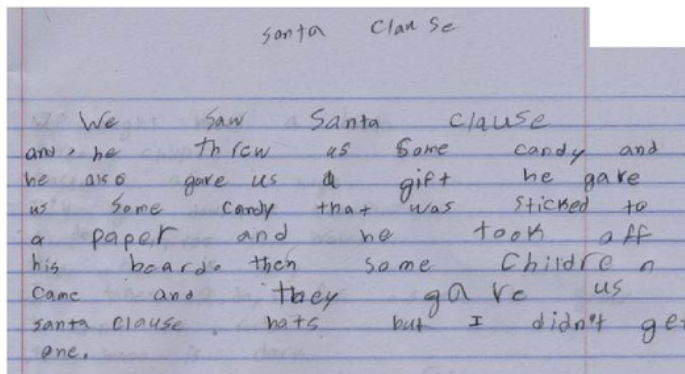 santa clause
We saw Santa clause
and, he threw us some candy and
he also gave us a gift he gave
us some candy that was sticked to
a paper and he took off
his beard. then some Children
came and they gave us
santa clause. hats but I didn't get
one.